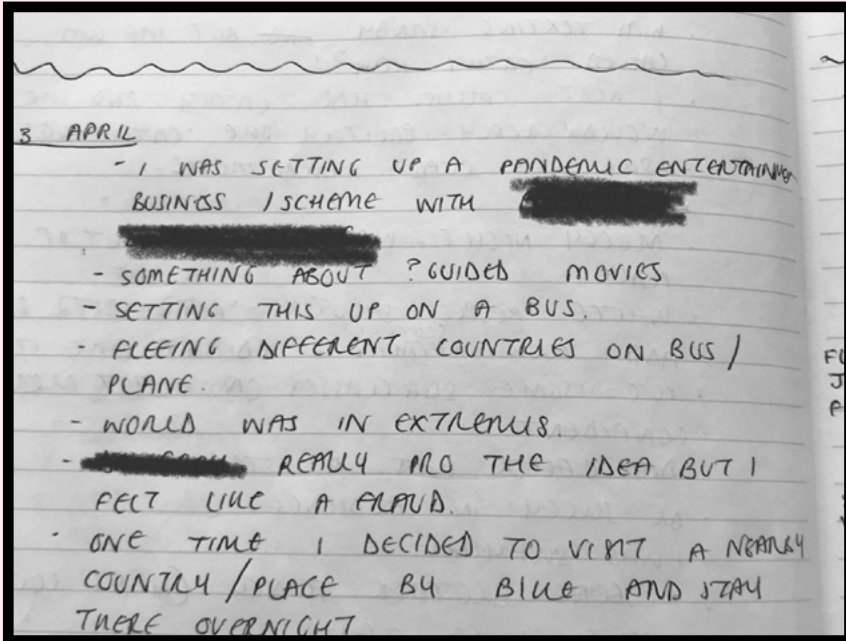 3 APRIL
- I WAS SETTING UP A PANDEMIC ENTERTAINMEN
BUSINESS / SCHEME WITH
- SOMETHING ABOUT ? GUIDED MOVIES
- SETTING THIS UP ON A BUS.
- FLEEING DIFFERENT COUNTRIES ON BUS /
PLANE.
- WORLD WAS IN EXTREMIS.
- REALLY PRO THE IDEA BUT I
FELT LIKE A FRAUD.
- ONE TIME I DECIDED TO VISIT A NEARBY
COUNTRY / PLACE BY BIKE AND STAY
THERE OVERNIGHT